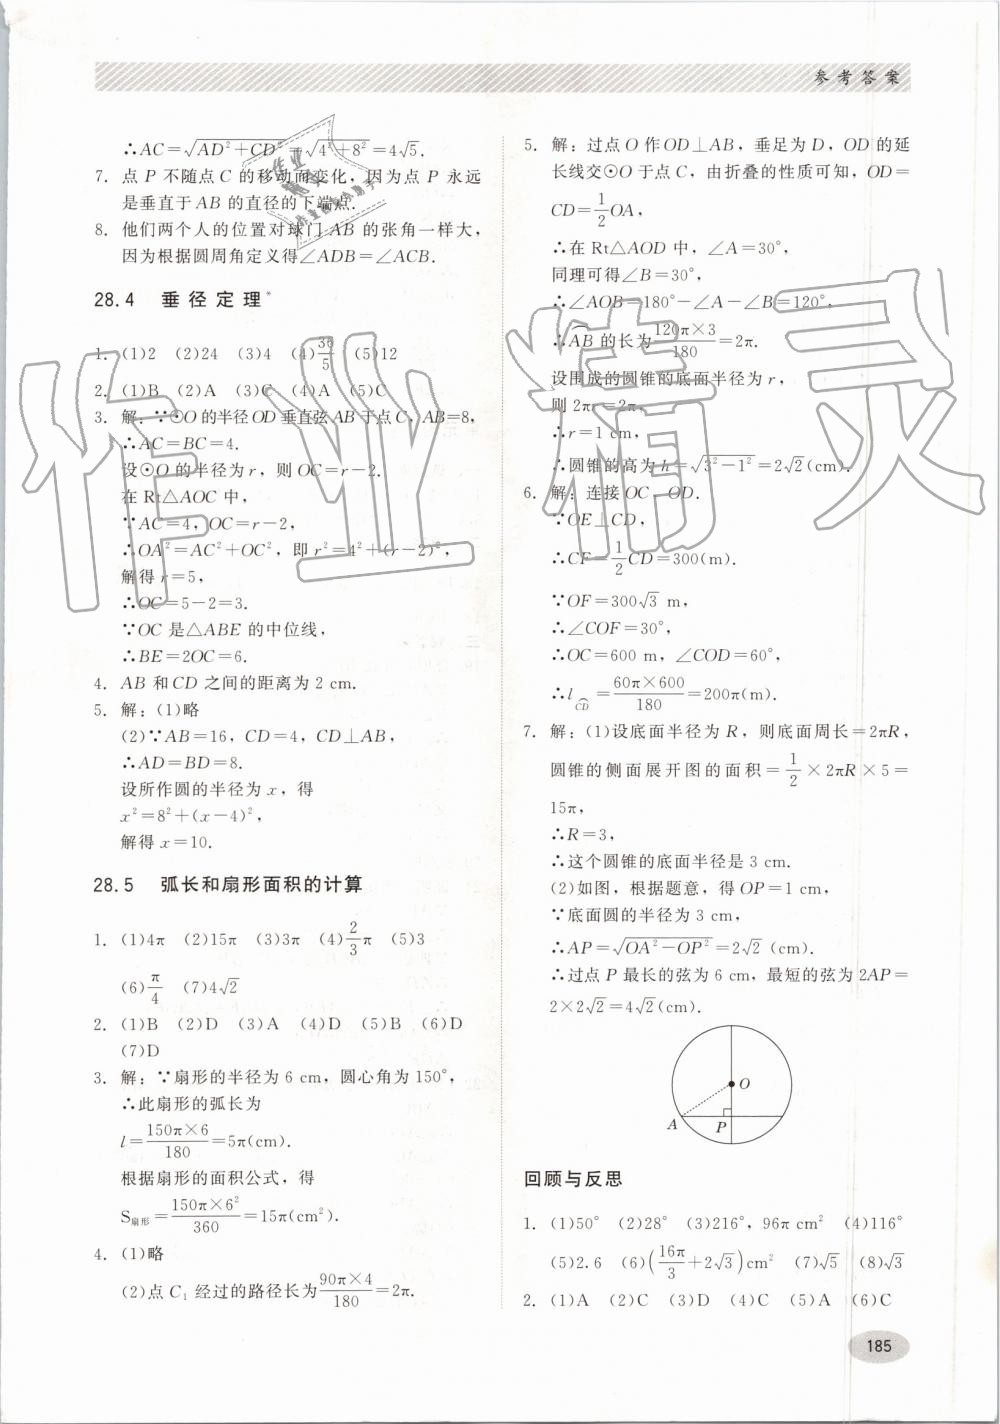 参考答案
∴AC=√(AD²+CD²)=√(4²+8²)=4√5.
7. 点 P 不随点 C 的移动而变化，因为点 P 永远
是垂直于 AB 的直径的下端点.
8. 他们两个人的位置对球门 AB 的张角一样大，
因为根据圆周角定义得∠ADB=∠ACB.
28.4 垂径定理*
1. (1)2 (2)24 (3)4 (4)36/5 (5)12
2. (1)B (2)A (3)C (4)A (5)C
3. 解：∵⊙O 的半径 OD 垂直弦 AB 于点 C，AB=8，
∴AC=BC=4.
设⊙O 的半径为 r，则 OC=r−2.
在 Rt△AOC 中，
∵AC=4，OC=r−2，
∴OA²=AC²+OC²，即 r²=4²+(r−2)²，
解得 r=5，
∴OC=5−2=3.
∵OC 是△ABE 的中位线，
∴BE=2OC=6.
4. AB 和 CD 之间的距离为 2 cm.
5. 解：(1)略
(2)∵AB=16，CD=4，CD⊥AB，
∴AD=BD=8.
设所作圆的半径为 x，得
x²=8²+(x−4)²，
解得 x=10.
28.5 弧长和扇形面积的计算
1. (1)4π (2)15π (3)3π (4)2/3π (5)3
(6)π/4 (7)4√2
2. (1)B (2)D (3)A (4)D (5)B (6)D
(7)D
3. 解：∵扇形的半径为 6 cm，圆心角为 150°，
∴此扇形的弧长为
l=150π×6/180=5π(cm).
根据扇形的面积公式，得
S扇形=150π×6²/360=15π(cm²).
4. (1)略
(2)点 C₁ 经过的路径长为90π×4/180=2π.
5. 解：过点 O 作 OD⊥AB，垂足为 D，OD 的延
长线交⊙O 于点 C，由折叠的性质可知，OD=
CD=1/2OA，
∴在 Rt△AOD 中，∠A=30°，
同理可得∠B=30°，
∴∠AOB=180°−∠A−∠B=120°，
∴AB⌒的长为120π×3/180=2π.
设围成的圆锥的底面半径为 r，
则 2πr=2π，
∴r=1 cm，
∴圆锥的高为 h=√(3²−1²)=2√2(cm).
6. 解：连接 OC，OD.
∵OE⊥CD，
∴CF=1/2CD=300(m).
∵OF=300√3 m，
∴∠COF=30°，
∴OC=600 m，∠COD=60°，
∴l CD⌒=60π×600/180=200π(m).
7. 解：(1)设底面半径为 R，则底面周长=2πR，
圆锥的侧面展开图的面积=1/2×2πR×5=
15π，
∴R=3，
∴这个圆锥的底面半径是 3 cm.
(2)如图，根据题意，得 OP=1 cm，
∵底面圆的半径为 3 cm，
∴AP=√(OA²−OP²)=2√2 (cm).
∴过点 P 最长的弦为 6 cm，最短的弦为 2AP=
2×2√2=4√2(cm).
O
A
P
回顾与反思
1. (1)50° (2)28° (3)216°，96π cm² (4)116°
(5)2.6 (6)(16π/3+2√3)cm² (7)√5 (8)√3
2. (1)A (2)C (3)D (4)C (5)A (6)C
185
作业精灵